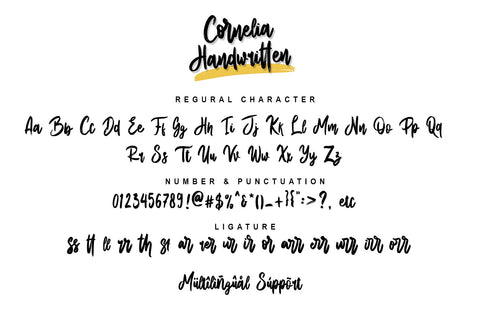 Cornelia
Handwritten
REGURAL CHARACTER
Aa Bb Cc Dd Ee Ff Gg Hh Ii Jj Kk Ll Mm Nn Oo Pp Qq
Rr Ss Tt Uu Vv Ww Xx Yy Zz
NUMBER & PUNCTUATION
0123456789!@#$%^&*()_+}{":>?, etc
LIGATURE
ss tt ll rr th st ar rer ur ir or arr err urr irr orr
Mültilingûål Süppõrt